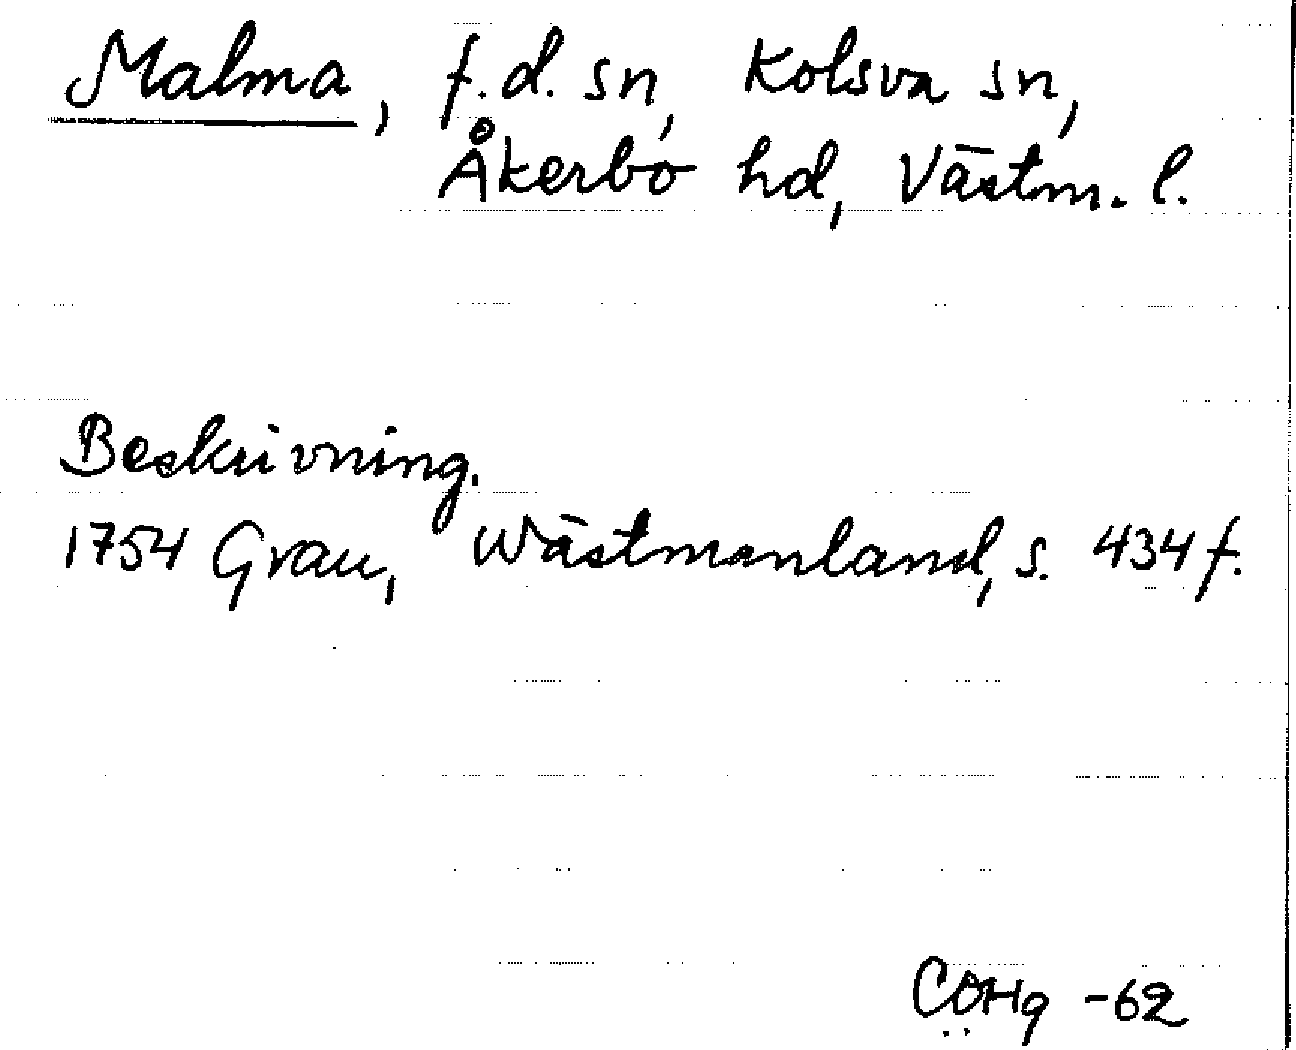 Malma, f.d. sn, Kolsva sn,
Åkerbo hd, Västm. l.
Beskrivning.
1754 Grau, Wästmanland, s. 434 f.
CÖHg -62